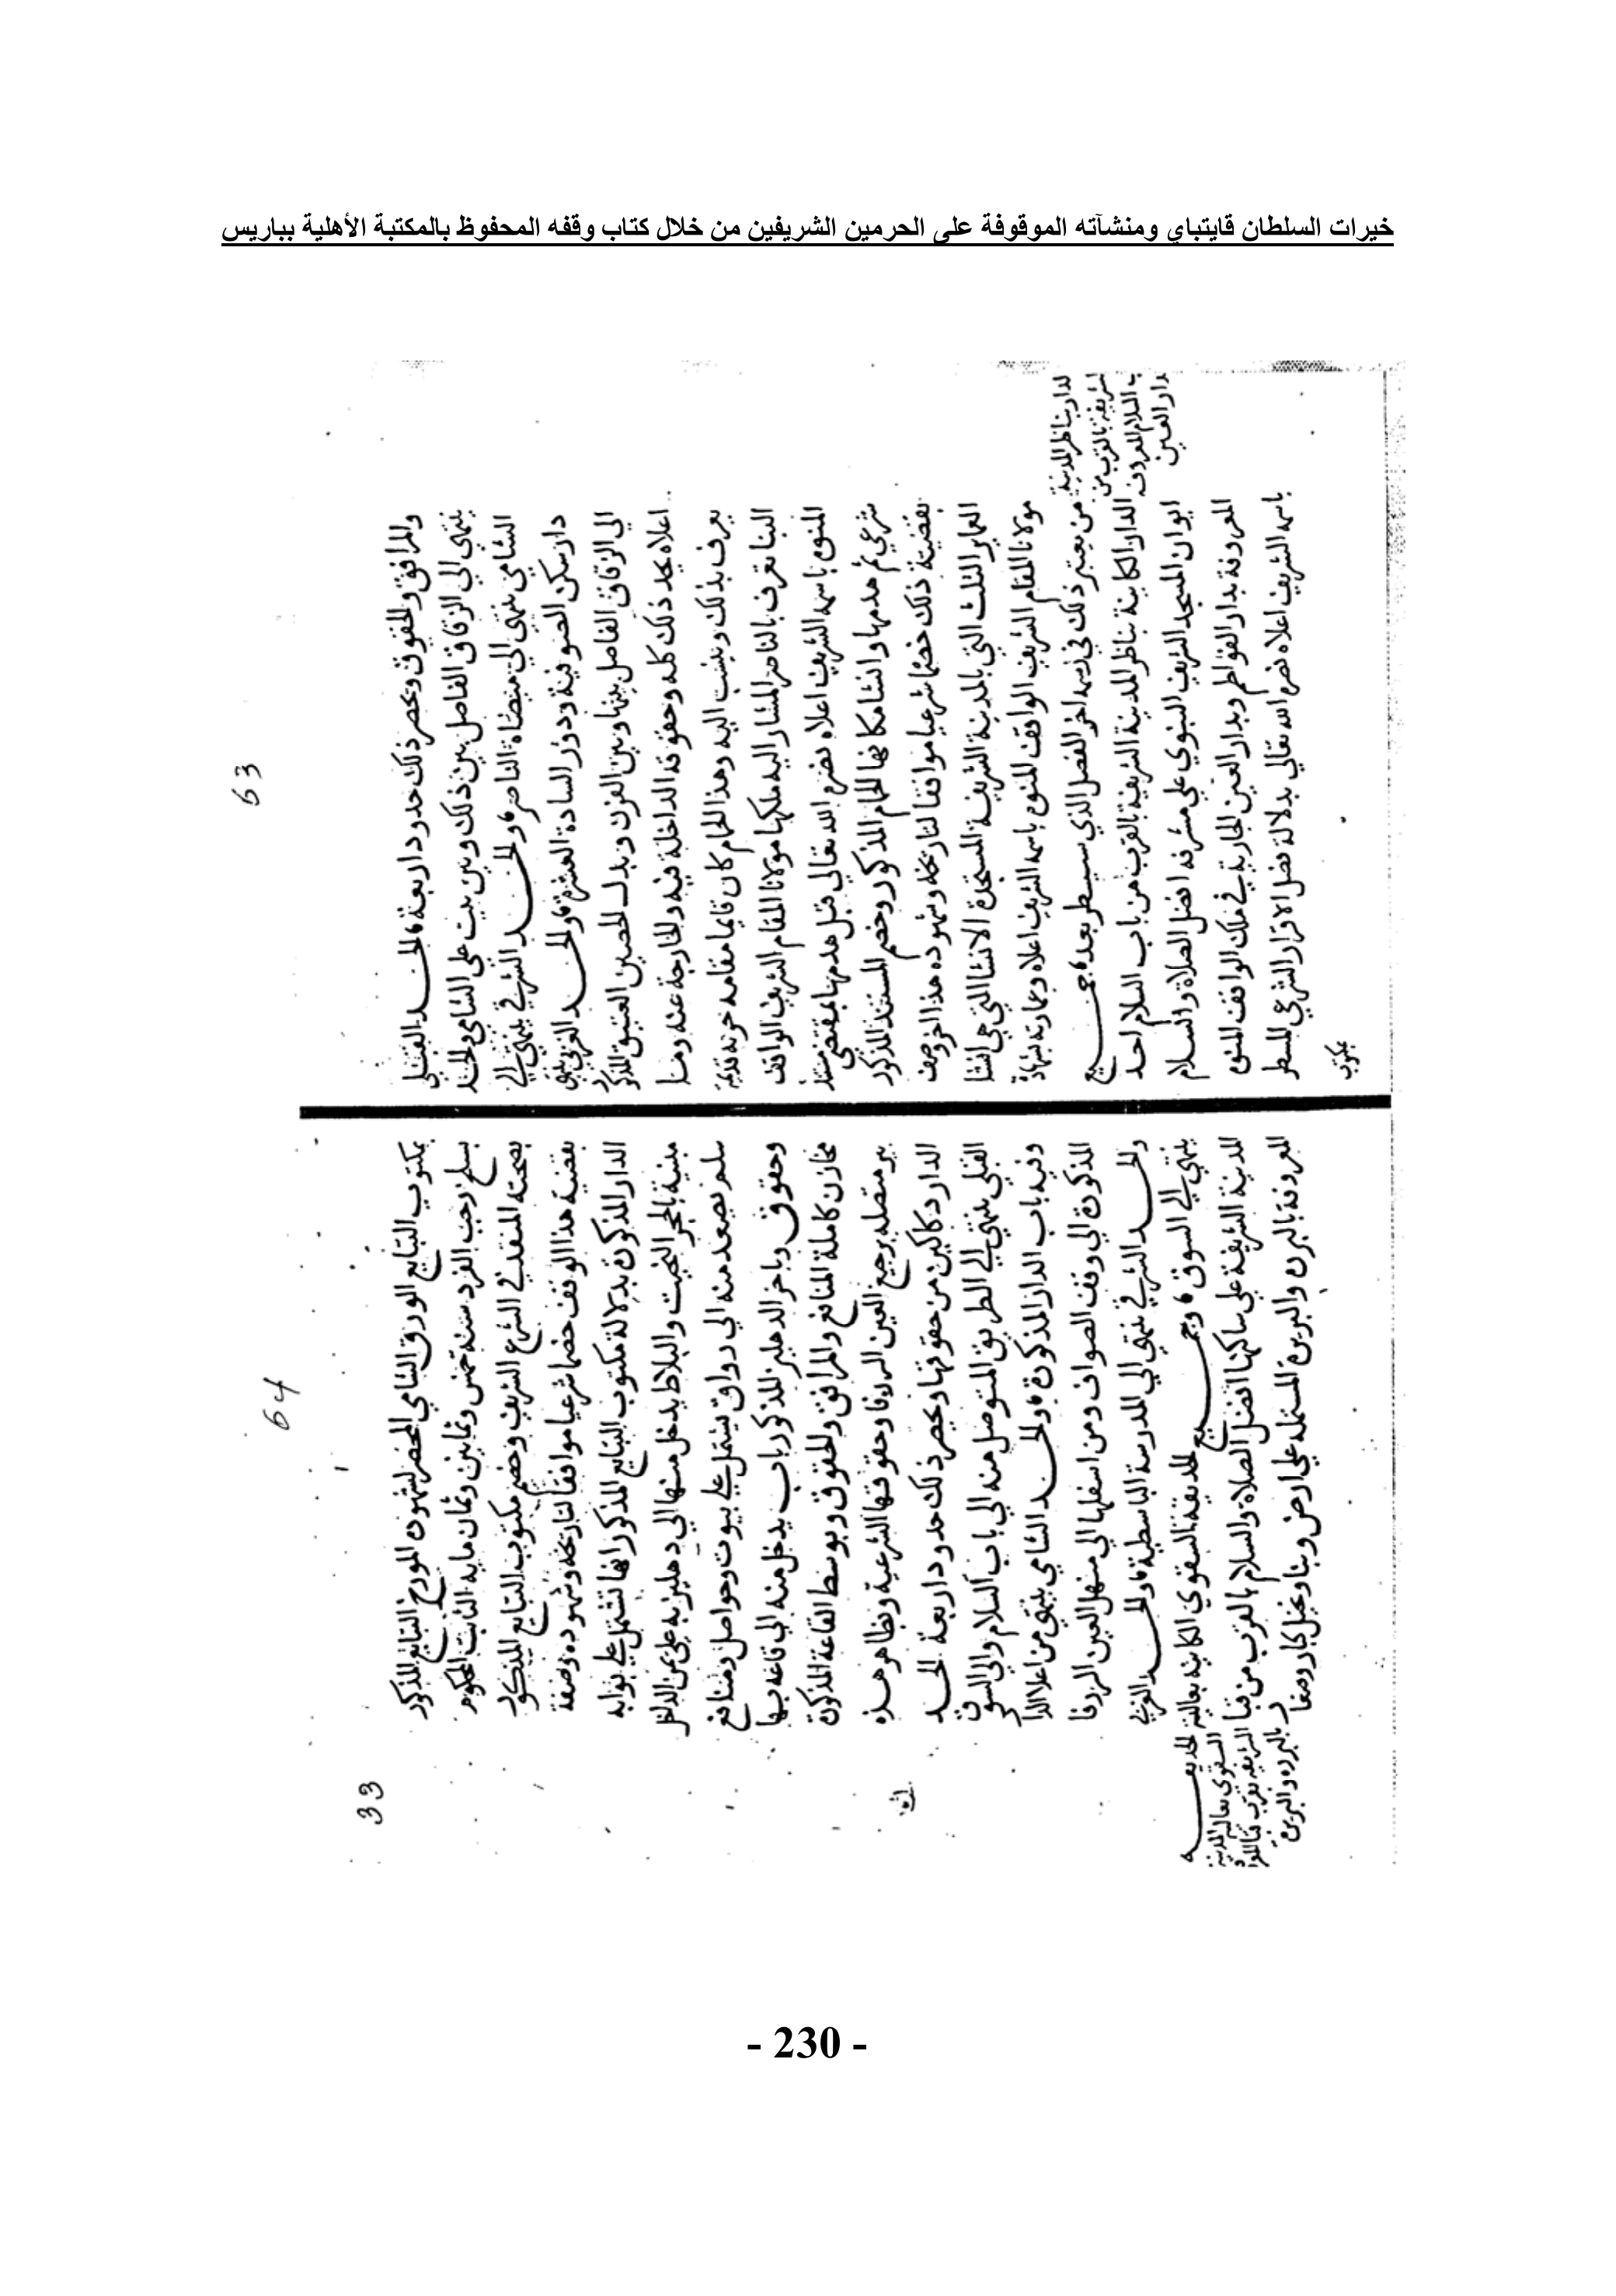 خيرات السلطان قايتباي ومنشآته الموقوفة على الحرمين الشريفين من خلال كتاب وقفه المحفوظ بالمكتبة الأهلية بباريس
63
والمرافق والحقوق ويحصر ذلك حدود اربعة الحد القبلي
ينتهي الي الزقاق الفاصل بين ذلك وبين بيت علي الشامي والحد
الشامي ينتهي الي ميضاة الناصر والحد الشرقي ينتهي الي
دار سكن الصوفية ودور السادة العشرة والحد الغربي ينتهي
الي الزقاق الفاصل بينها وبين الفرن وبدل الحصين العتيق المذكور
اعلاه بحد ذلك كله وحقوقه الداخلة فيه والخارجة عنه وما
يعرف بذلك وينسب اليه وهذا الحمام كان قايما مقامه خربة قديمة
البنا تعرف بالناصر المشار اليه ملكها مولانا المقام الشريف الواقف
المنوه باسمه الشريف اعلاه نصره الله تعالي قبل هدمها بمقتضي مستند
شرعي ثم هدمها وانشا مكانها الحمام المذكور وخصم المستند المذكور
بقضية ذلك خصما شرعيا موافقا لتاريخه وشهوده هذا الخروصف
العماير الثلث التي بالمدينة الشريفة المستجدة الانشا التي هي انشا
مولانا المقام الشريف الواقف المنوه باسمه الشريف اعلاه وعمارته بشهادة
من يعتبر ذلك في رسمه اخر الفصل الذي سيسطر بعد جميع
الدار الكاينة بناظر المدينة الشريفة بالقرب من باب السلام احد
ابوان المسجد الشريف النبوي علي مشرفه افضل الصلاة والسلام
المعروفة بدار الفواطم وبدار العين الجارية في ملك الواقف المنوه
باسمه الشريف اعلاه نصره الله تعالي بدلالة فصل الاقرار الشرعي المسطر
بمكتوب
لدار بناظر المدينة
لشريفة بالقرب من
ب السلام المعروف
دار العين
64
33
بمكتوب التبايع الورق الشامي المحضر لشهوده المورخ التبايع المذكور
بسلخ رجب الفرد سنة خمس وثمانين وثمان مايه الثابت المحكوم
بصحته المنفد في الشرع الشريف وخصم مكتوب التبايع المذكور
بقضية هذا الوقف خصما شرعيا موافقا لتاريخه وشهوده وصفة
الدار المذكورة بدلالة مكتوب التبايع المذكور انها تشتمل علي بوابه
مبنية بالحجر النحيت والبلاط يدخل منها الي دهليز به علي يمن الداخل
سلم يصعد منه الي رواق يشتمل علي بيوت وحواصل ومنافع
وحقوق وباخر الدهليز المذكور باب يدخل منه الي قاعه بها
مخازن كاملة المنافع والمرافق والحقوق وبوسط القاعة المذكورة
بير متصله برجيع العين الزرقا وحقوقها الشرعية وبظاهر هذه
الدار دكاكين من حقوقها ويحصر ذلك حدود اربعة الحد
القبلي ينتهي الي الطريق المتوصل منه الي باب السلام والي السوق
وفيه باب الدار المذكورة والحد الشامي ينتهي من اعلا الدار
المذكورة الي وقف الصواف ومن اسفلها الي منهل العين الزرقا
والحد الشرقي ينتهي الي المدرسة الباسطية والحد الغربي
ينتهي الي السوق وجميع الحديقة السقوي الكاينه بعالية
المدينة الشريفة علي ساكنها افضل الصلاة والسلام بالقرب من قبا
المعروفة بالبردة والبريدة المشتمله علي ارض وبنا ونخيل كبار وصغار
الحديقه
السقوي بعالية المدينة
الشريفه بقرب قبا المعروفة
بالبرده والبريدة
- 230 -